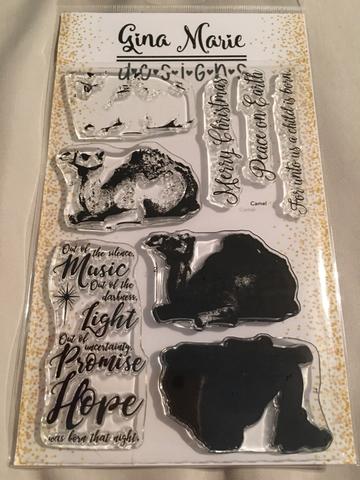 Gina Marie
designs
Merry Christmas
Peace on Earth
For unto us a child is born.
Camel
Out of the silence,
Music
Out of the
darkness,
Light
Out of
uncertainty,
Promise
Hope
was born that night.